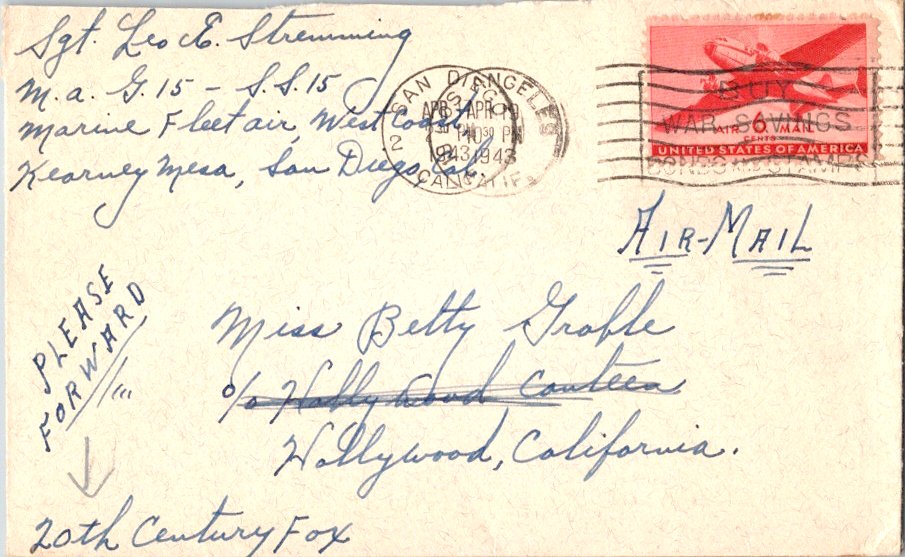 Sgt. Leo E. Stremming
M. a. G. 15 - S. S. 15
Marine Fleet air, West Coast
Kearney Mesa, San Diego, Cal.
SAN DI
2
APR
1943
CAL
LOS ANGELES
APR 9
30 PM
1943
CALIF.
BUY
WAR SAVINGS
BONDS AND STAMPS
AIR 6 MAIL
CENTS
UNITED STATES OF AMERICA
AIR-MAIL
PLEASE
FORWARD
Miss Betty Grable
c/o Hollywood Canteen
Hollywood, California.
20th Century Fox